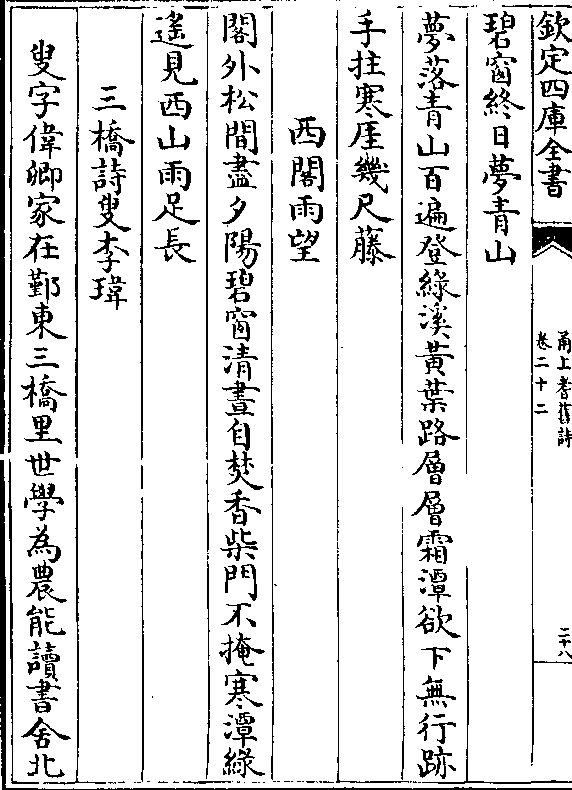 欽定四庫全書
甬上耆舊詩
卷二十二
二十八
碧窗終日夢青山
夢落青山百遍登綠溪黃葉路層層霜潭欲下無行跡
手拄寒厓幾尺藤
西閣雨望
閣外松間盡夕陽碧窗清晝自焚香柴門不掩寒潭綠
遙見西山雨足長
三橋詩叟李瑋
叟字偉卿家在鄞東三橋里世學為農能讀書舍北